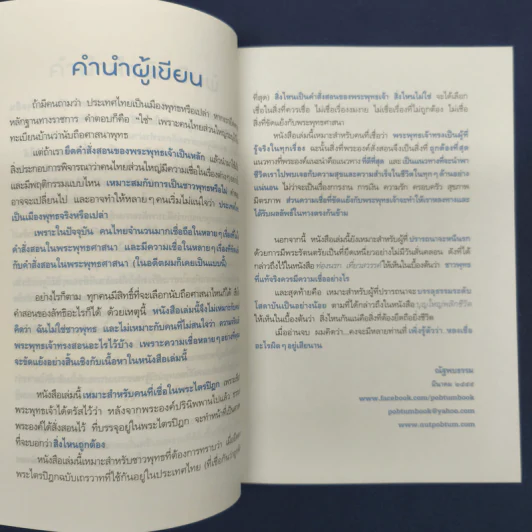 คำนำผู้เขียน
ถ้ามีคนถามว่า ประเทศไทยเป็นเมืองพุทธหรือเปล่า
หลักฐานทางราชการ คำตอบก็คือ "ใช่" เพราะคนไทยส่วนใหญ่
ทะเบียนบ้านว่านับถือศาสนาพุทธ
แต่ถ้าเรายึดคำสอนของพระพุทธเจ้าเป็นหลัก
สิ่งประกอบการพิจารณาว่าคนไทยส่วนใหญ่มีความเชื่อในเรื่อง
และมีพฤติกรรมแบบไหน เหมาะสมกับการเป็นชาวพุทธหรือไม่
อาจจะเปลี่ยนไป และอาจทำให้หลายๆ คนเริ่มไม่แน่ใจว่า
เป็นเมืองพุทธจริงหรือเปล่า
เพราะในปัจจุบัน คนไทยจำนวนมากเชื่อถือในหลายๆ เรื่อง
คำสั่งสอนในพระพุทธศาสนา และมีความเชื่อในหลายๆ เรื่อง
กับคำสั่งสอนในพระพุทธศาสนา (ในอดีตผมก็เคยเป็นแบบนี้)
อย่างไรก็ตาม ทุกคนมีสิทธิ์ที่จะเลือกนับถือศาสนาไหนก็ได้
คำสอนของลัทธิอะไรก็ได้ ด้วยเหตุนี้ หนังสือเล่มนี้จึงไม่เหมาะกับ
คิดว่า ฉันไม่ใช่ชาวพุทธ และไม่เหมาะกับคนที่ไม่สนใจว่า
พระพุทธเจ้าทรงสอนอะไรไว้บ้าง เพราะความเชื่อหลายๆ อย่าง
จะขัดแย้งอย่างสิ้นเชิงกับเนื้อหาในหนังสือเล่มนี้
หนังสือเล่มนี้เหมาะสำหรับคนที่เชื่อในพระไตรปิฎก
พระพุทธเจ้าได้ตรัสไว้ว่า หลังจากพระองค์ปรินิพพานไปแล้ว
พระองค์ได้สั่งสอนไว้ ที่บรรจุอยู่ในพระไตรปิฎก จะทำหน้าที่
ที่จะบอกว่า สิ่งไหนถูกต้อง
หนังสือเล่มนี้เหมาะสำหรับชาวพุทธที่ต้องการทราบว่า
พระไตรปิฎกฉบับเถรวาทที่ใช้กันอยู่ในประเทศไทย
ที่สุด) สิ่งไหนเป็นคำสั่งสอนของพระพุทธเจ้า สิ่งไหนไม่ใช่ จะได้เลือก
เชื่อในสิ่งที่ควรเชื่อ ไม่เชื่อเรื่องงมงาย ไม่เชื่อเรื่องที่ไม่ถูกต้อง ไม่เชื่อ
สิ่งที่ขัดแย้งกับพระพุทธศาสนา
หนังสือเล่มนี้เหมาะสำหรับคนที่เชื่อว่า พระพุทธเจ้าทรงเป็นผู้ที่
รู้จริงในทุกเรื่อง ฉะนั้นสิ่งที่พระองค์สั่งสอนจึงเป็นสิ่งที่ ถูกต้องที่สุด
แนวทางที่พระองค์แนะนำคือแนวทาง ที่ดีที่สุด และเป็นแนวทางที่จะนำพา
ชีวิตเราไปพบเจอกับความสุขและความสำเร็จในชีวิตในทุกๆ ด้านอย่าง
แน่นอน ไม่ว่าจะเป็นเรื่องการงาน การเงิน ความรัก ครอบครัว สุขภาพ
มิตรภาพ ส่วนความเชื่อที่ขัดแย้งกับพระพุทธเจ้าจะทำให้เราหลงทางและ
ได้รับผลลัพธ์ในทางตรงกันข้าม
นอกจากนี้ หนังสือเล่มนี้ยังเหมาะสำหรับผู้ที่ ปรารถนาจะหนีนรก
ด้วยการมีพระรัตนตรัยเป็นที่ยึดเหนี่ยวอย่างไม่มีวันสั่นคลอน ดังที่ได้
กล่าวถึงไว้ในหนังสือ ท่องนรก เที่ยวสวรรค์ ให้เห็นเป็นเบื้องต้นว่า ชาวพุทธ
ที่แท้จริงควรเชื่ออย่างไร
และสุดท้ายคือ เหมาะสำหรับผู้ที่ปรารถนาจะบรรลุธรรมระดับ
โสดาบันเป็นอย่างน้อย ตามที่ได้กล่าวถึงในหนังสือ บุญใหญ่พลิกชีวิต
ให้เห็นเป็นเบื้องต้นว่า สิ่งไหนกันแน่คือสิ่งที่ต้องยึดถือยิ่งชีวิต
เมื่ออ่านจบ ผมคิดว่า...คงจะมีหลายท่านที่ เพิ่งรู้ตัวว่า หลงเชื่อ
อะไรผิดๆ อยู่เสียนาน
ณัฐพบธรรม
มีนาคม ๒๕๕๕
www.facebook.com/pobtumbook
pobtumbook@yahoo.com
www.nutpobtum.com